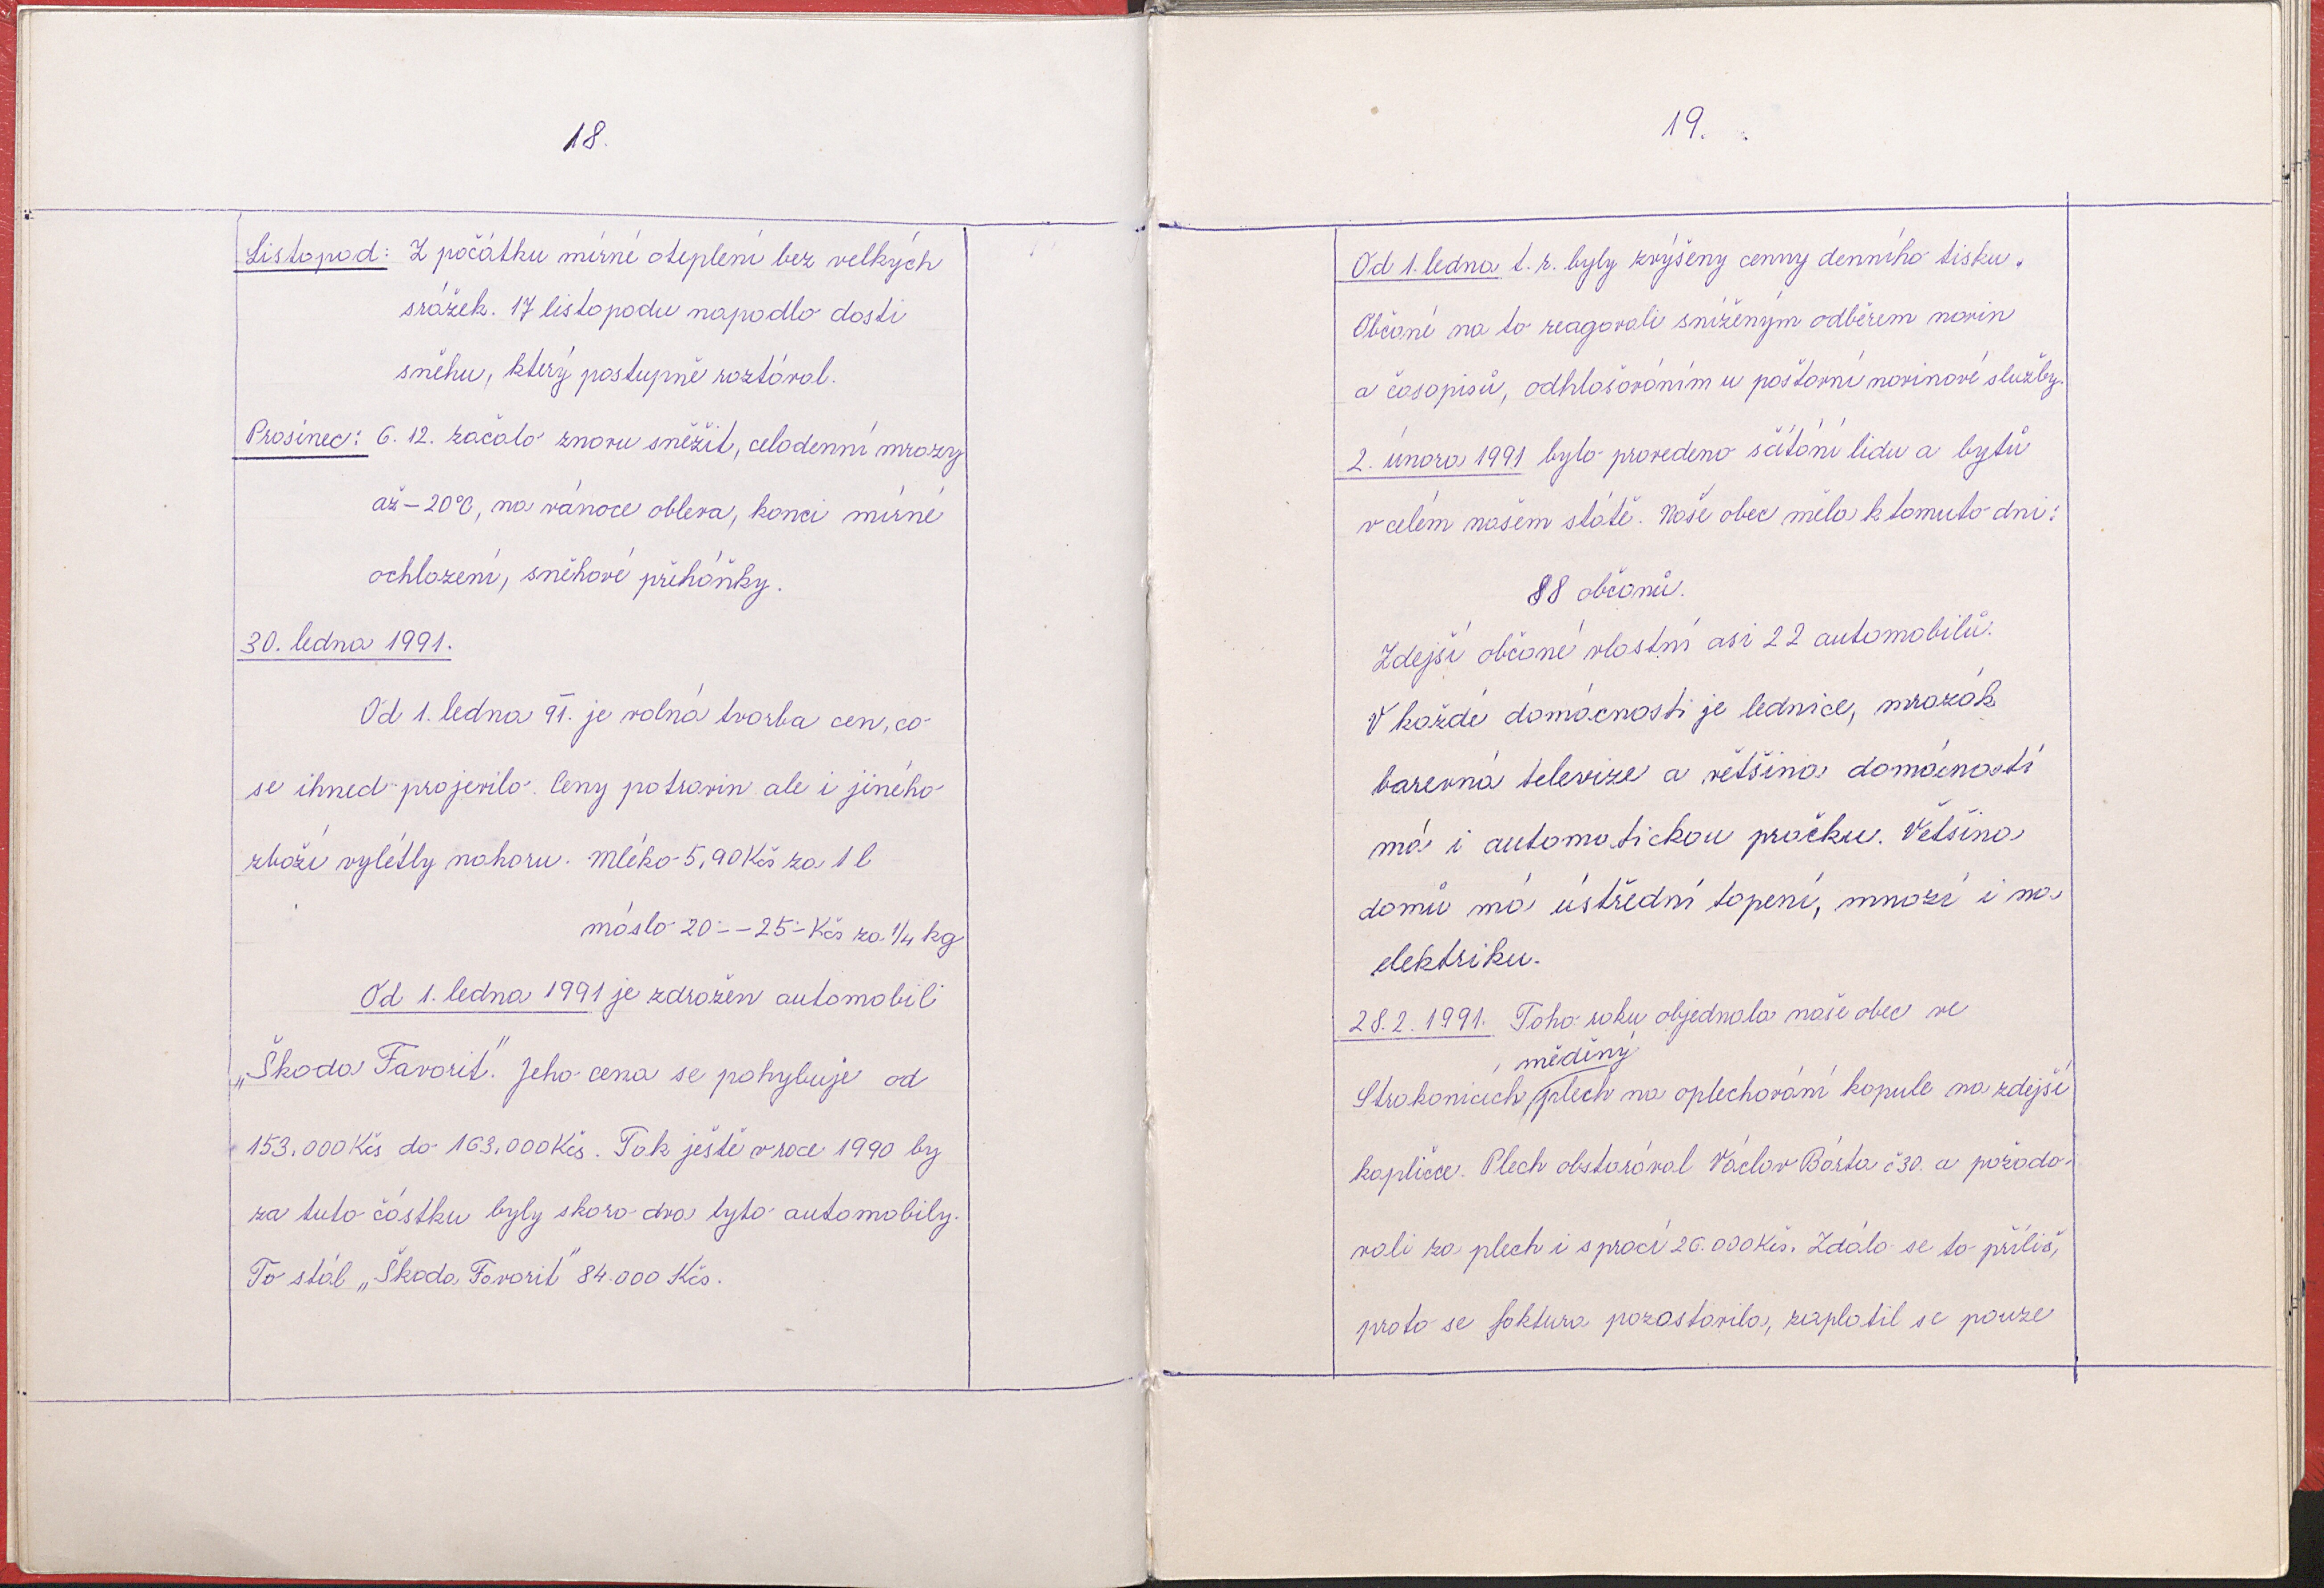 18.
Listopad: Z počátku mírné oteplení bez velkých
srážek. 17 listopadu napadlo dosti
sněhu, který postupně roztával.
Prosinec: 6. 12. začalo znovu sněžit, celodenní mrazy
až -20°C, na vánoce obleva, konci mírné
ochlazení, sněhové přeháňky.
30. ledna 1991.
Od 1. ledna 91. je volná tvorba cen, co
se ihned projevilo. Ceny potravin ale i jiného
zboží vylétly nahoru. Mléko 5,90 Kčs za 1 l
máslo 20.- - 25.- Kčs za 1/4 kg
Od 1. ledna 1991 je zdražen automobili
„Škoda Favorit". Jeho cena se pohybuje od
153.000 Kčs do 163.000 Kčs. Tak ještě v roce 1990 by
za tuto částku byly skoro dva tyto automobily.
To stál „Škoda Favorit" 84.000 Kčs.
19.
Od 1. ledna t. r. byly zvýšeny cenny denního tisku.
Občané na to reagovali sníženým odběrem novin
a časopisů, odhlašováním u poštovní novinové služby.
2. února 1991 bylo provedeno sčítání lidu a bytů
v celém našem státě. Naše obec měla k tomuto dni:
88 občanů.
Zdejší občané vlastní asi 22 automobilů.
V každé domácnosti je lednice, mrazák
barevná televize a většina domácností
má i automatickou pračku. Většina
domů má ústřední topení, mnozí i na
elektriku.
28. 2. 1991. Toho roku objednala naše obec ve
měděný
Strakonicích plech na oplechování kopule na zdejší
kapličce. Plech obstarával Václav Bárta č 30. a požado-
vali za plech i s prací 26.000 Kčs. Zdálo se to příliš,
proto se faktura pozastavila, zaplatil se pouze